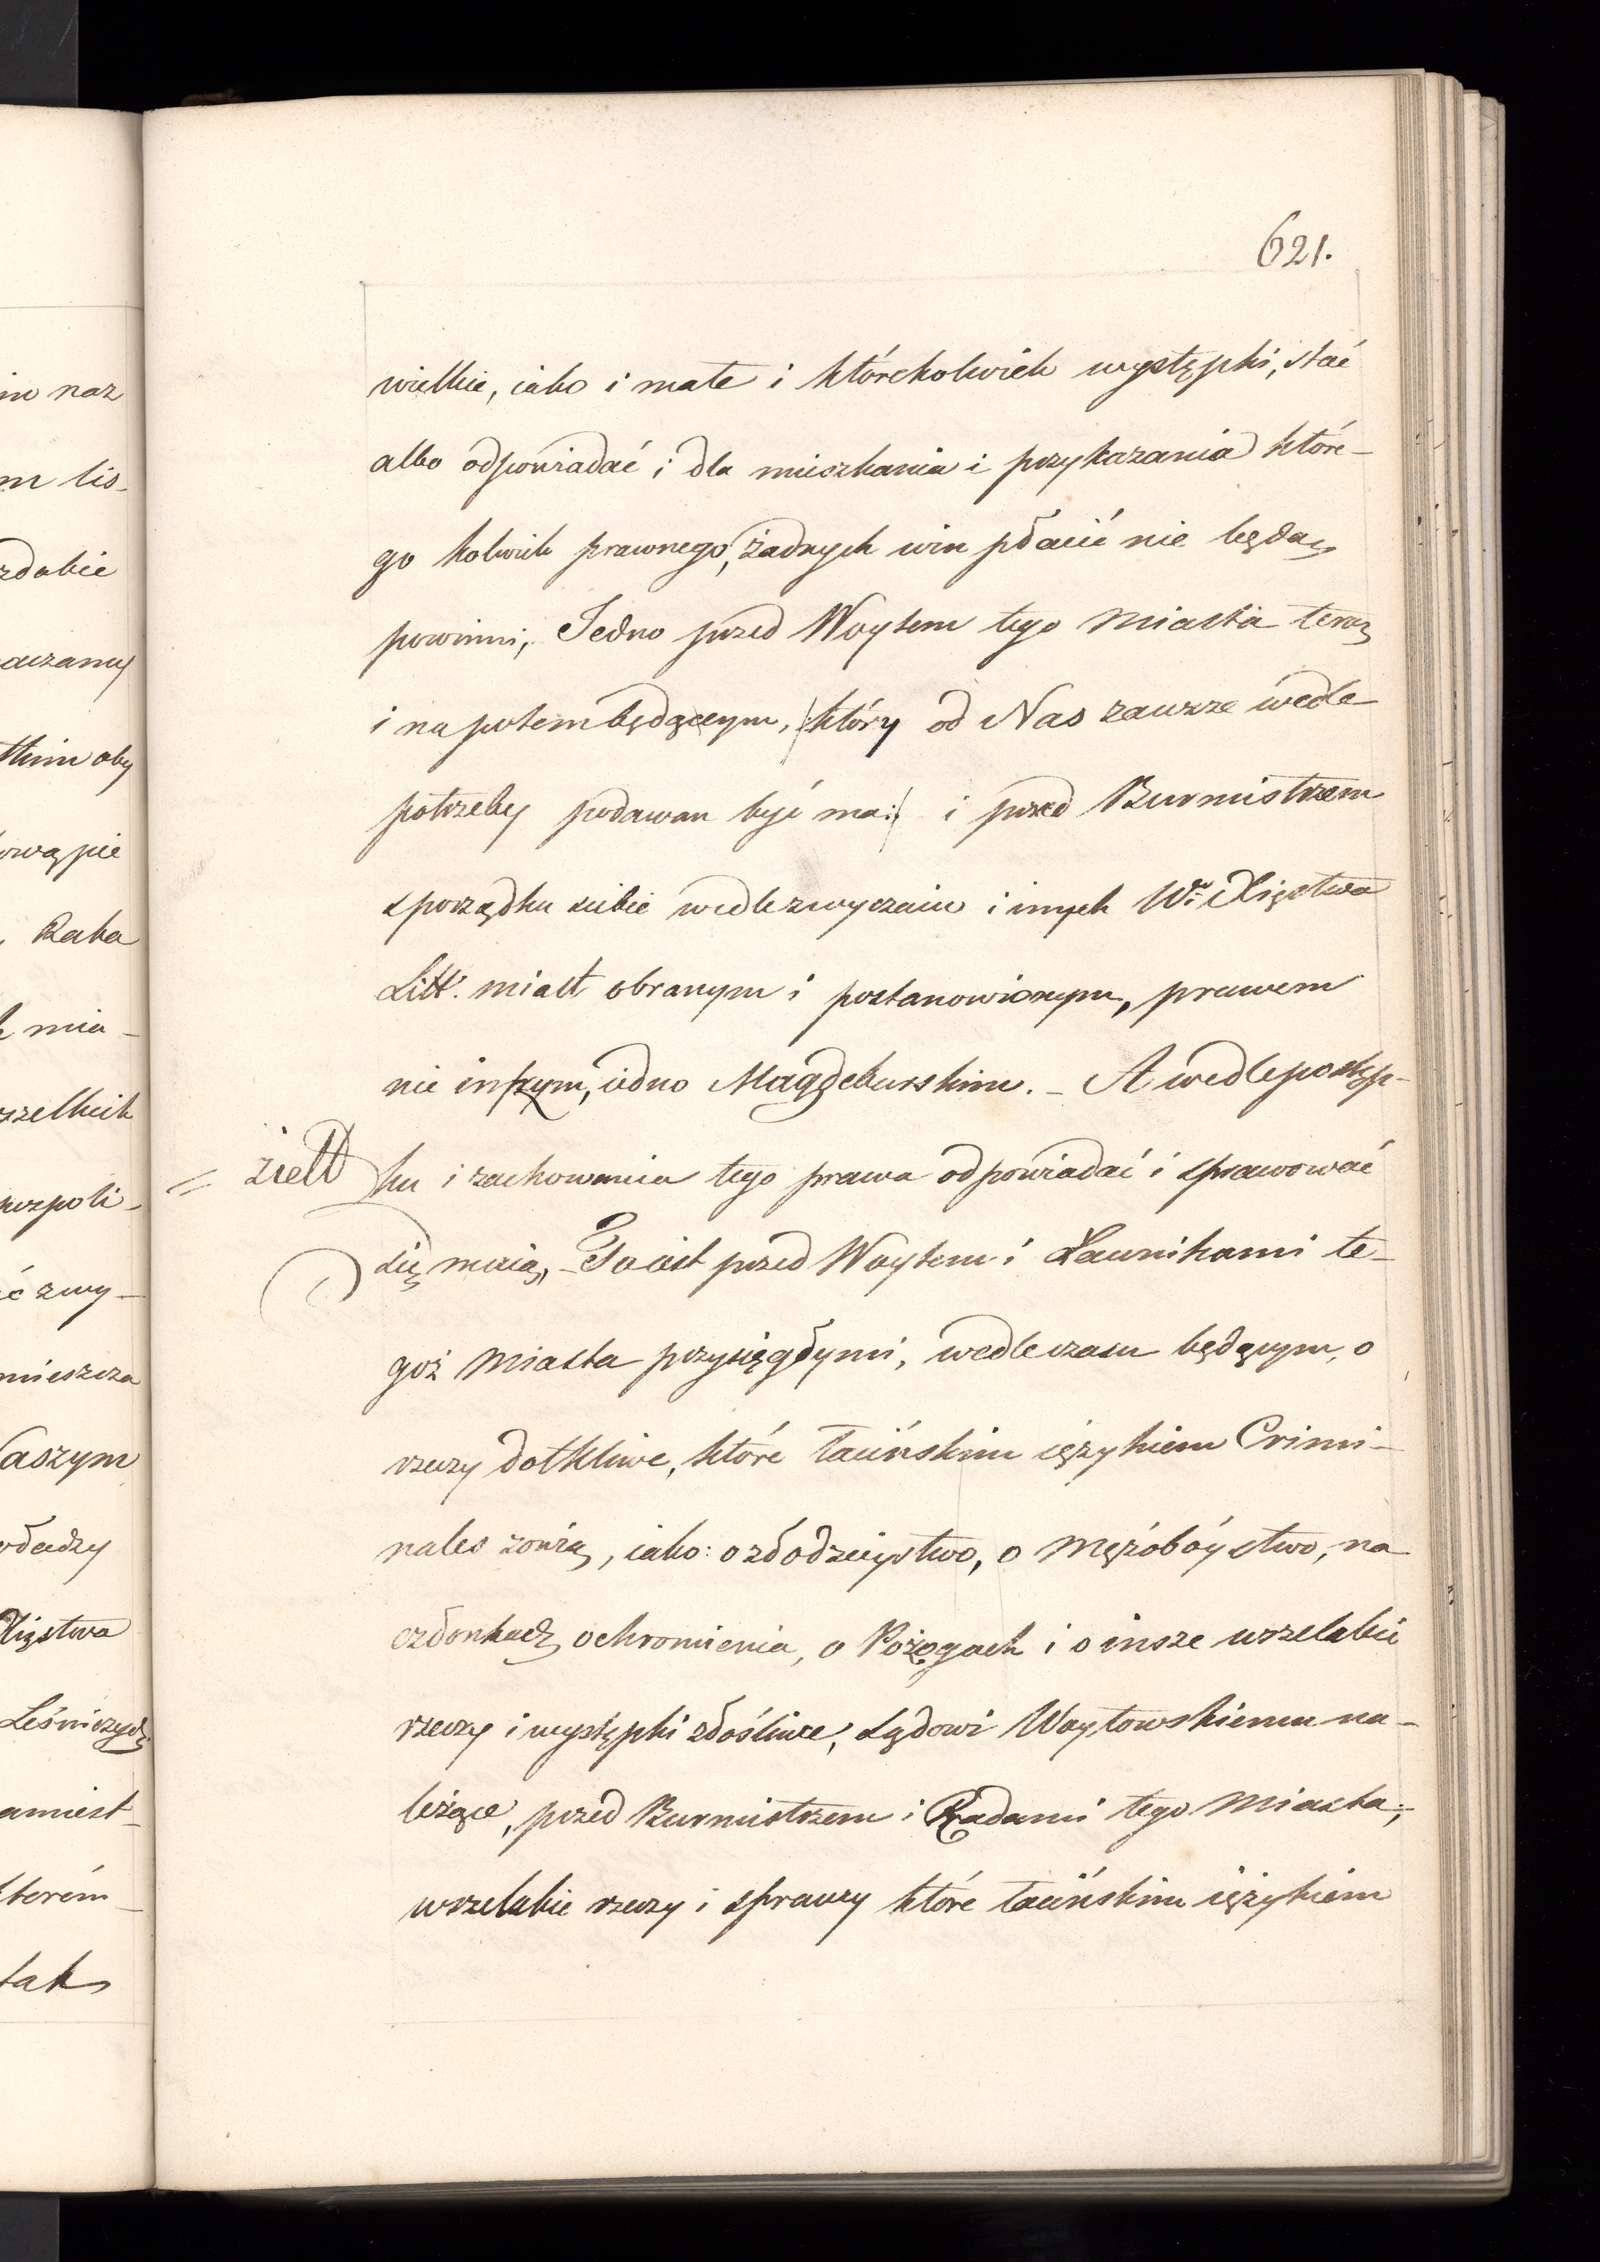 621.
wielkie, iako i małe i którekolwiek występki, stać
albo odpowiadać i dla mieszkania i przykazania które-
go kolwiek prawnego, żadnych win płacić nie będą
powinni, Jedno przed Woytem tego Miasta teraz
i na potem będącym, /:który od Nas zawsze wedle
potrzeby podawan być ma:/ i przed Burmistrzem
z porządku siebie wedle zwyczaiu i inych Wo. Xięstwa
Litt. miast obranym i postanowionym, prawem
nie inszym, iedno Magdeburskim. - A wedle postęp-
= żiełł ku i zachowania tego prawa odpowiadać i sprawować
się maią, - To iest przed Woytem i Ławnikami te-
goż Miasta przysięgłymi, wedle czasu będącym, o
rzeczy dotkliwe, które łacińskim ięzykiem Crimi-
nales zowią, iako: o złodzieystwo, o Mężóbóystwo, na
członkach ochromienia, o Pożogach i o insze wszelakie
rzeczy i występki złośliwe, Sądowi Woytowskiemu na-
leżące, przed Burmistrzem i Radami tego Miasta;-
wszelakie rzeczy i sprawy które łacińskim ięzykiem
im naz
m lis-
zdobie
aczamy
tkim oby
owąpie
Raka
k mia-
szelkich
pospoli-
ć zwy-
mieszcza
Naszym
władzy
Xięstwa
Leśniczych
amiest-
którém-
tak